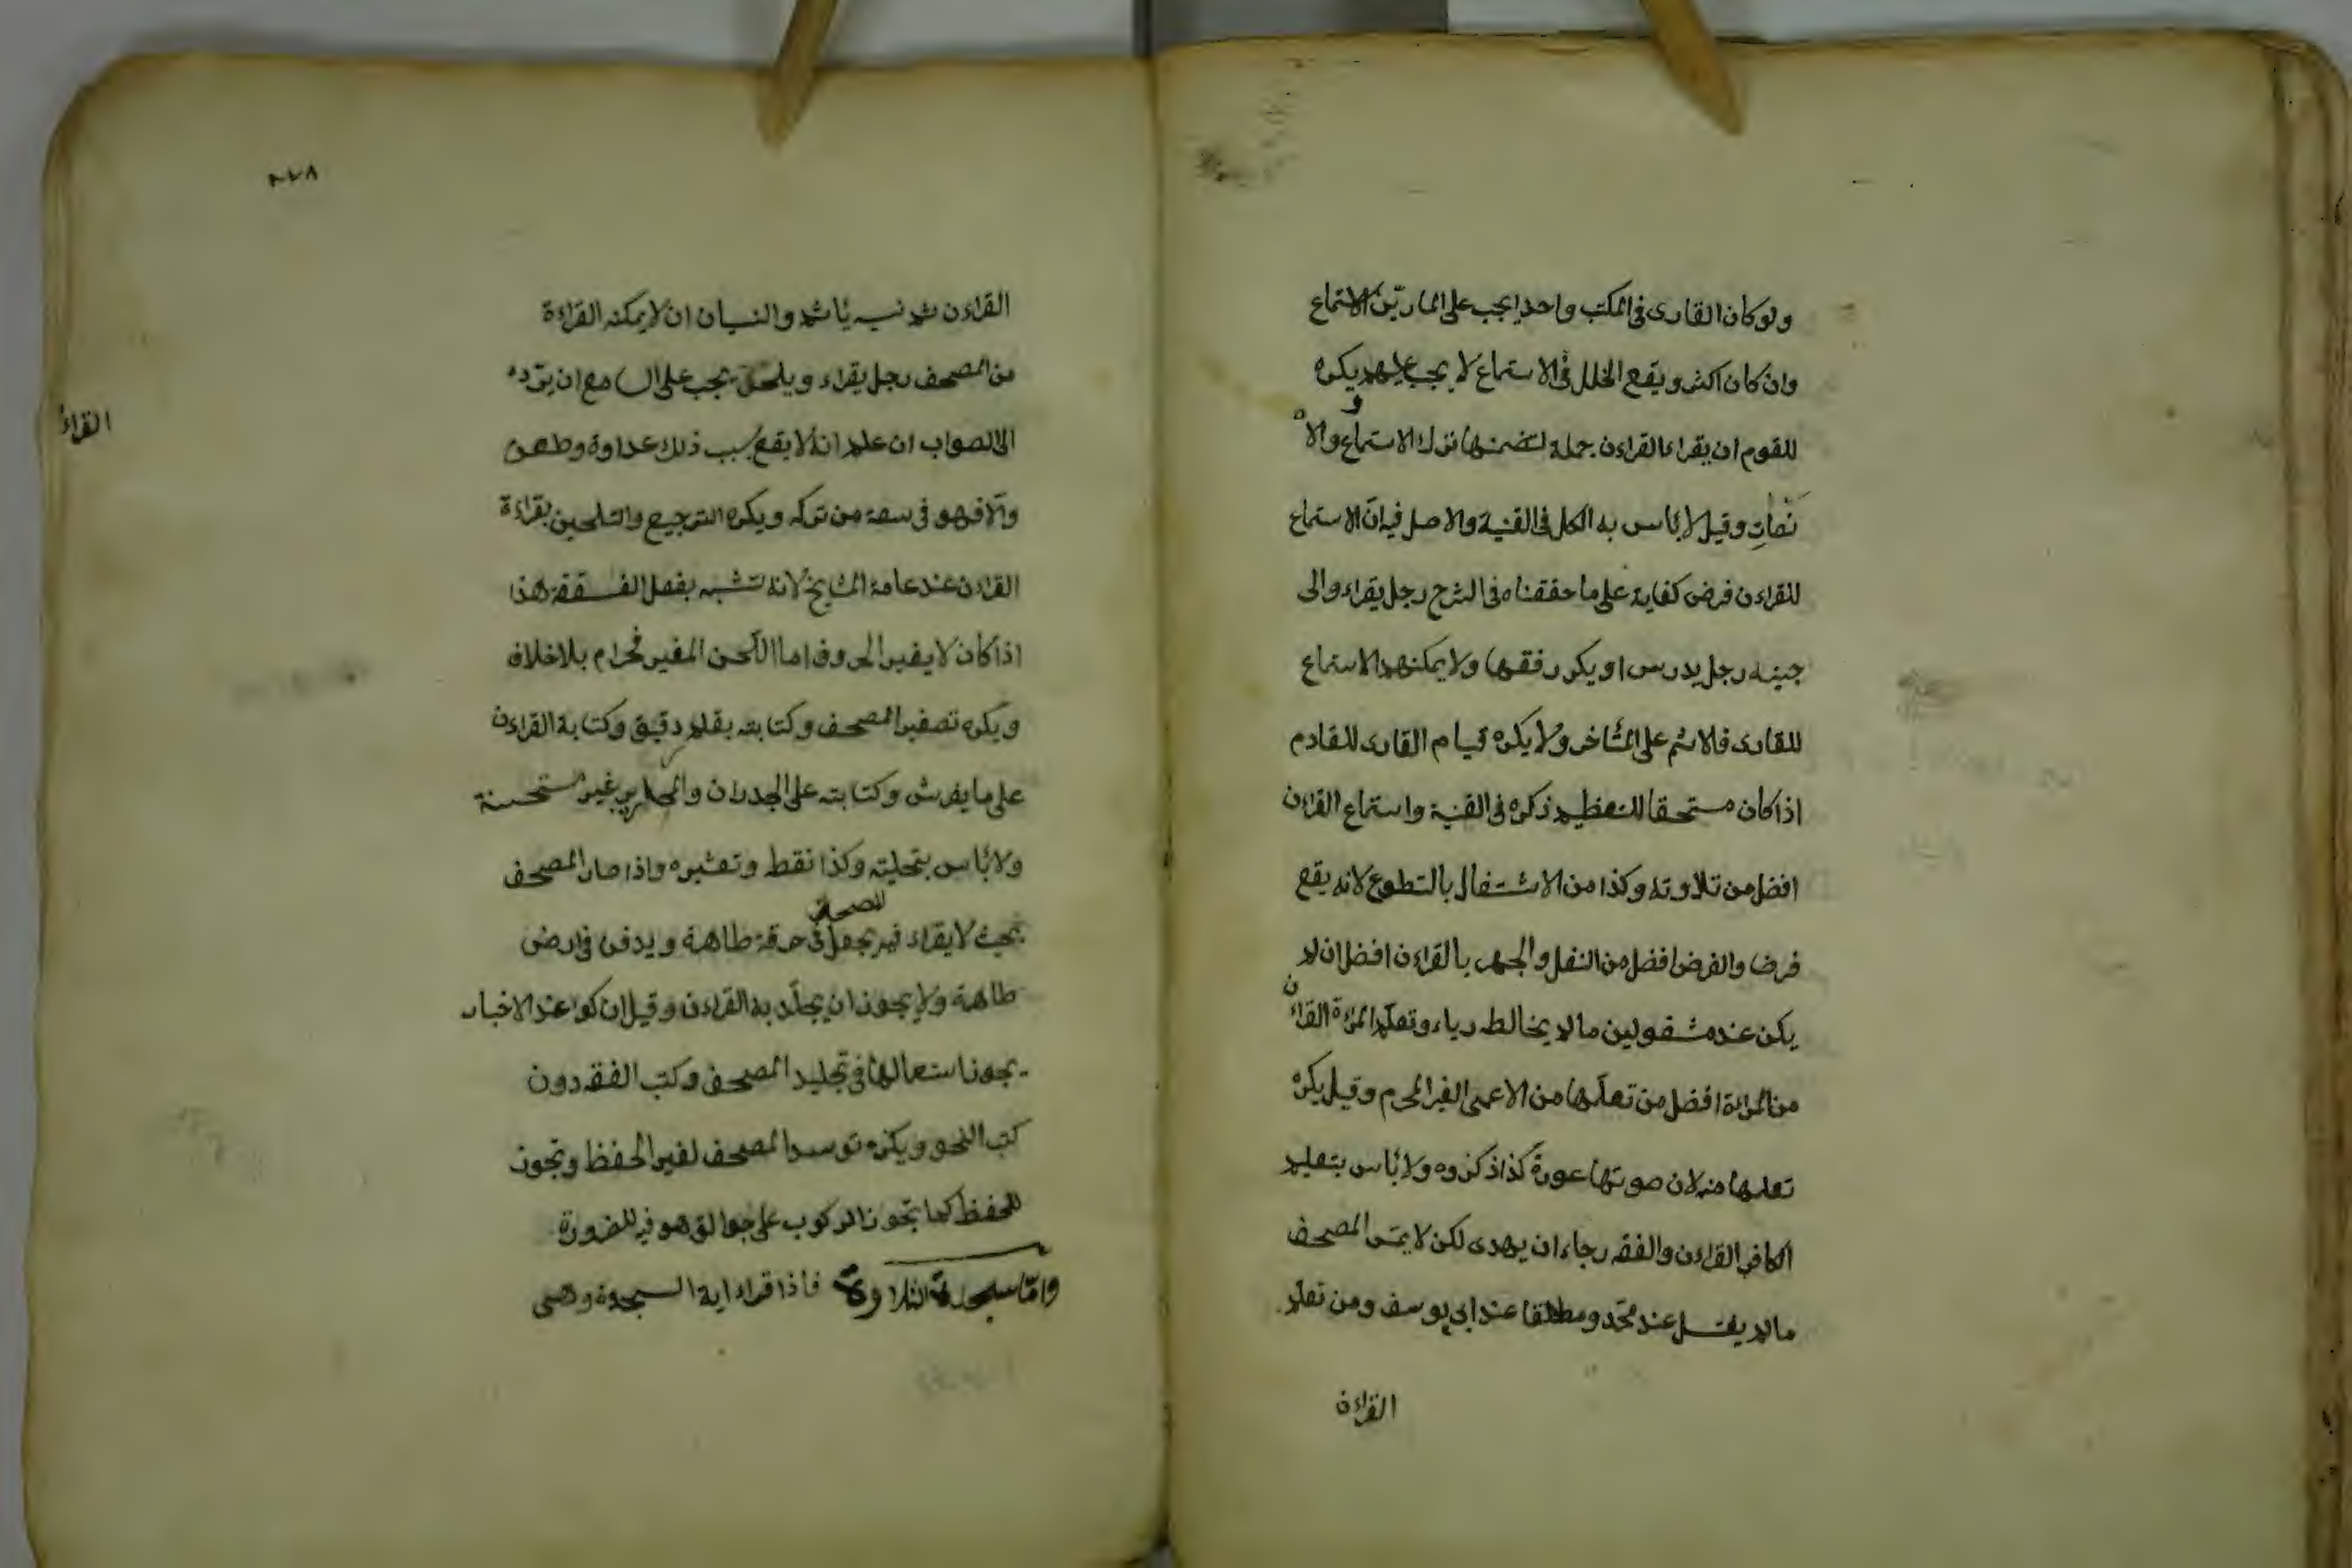 ولو كان القارى فى المكتب واحدا يجب على المارين الاستماع
وان كان اكثر ويقع الخلل فى الاستماع لا يجب عليهم يكره
للقوم ان يقراء القراءن جملة لتضمنها ترك الاستماع والا
نصات وقيل لا بأس به الكل فى القنية والاصل فيه ان الاستماع
للقراءن فرض كفاية على ما حققناه فى الشرح رجل يقراء والى
جنبه رجل يدرس او يكرر فقها ولا يمكنهم الاستماع
للقارى فالاثم على المتأخر ولا يكره قيام القارى للقادم
اذا كان مستحقا للتعظيم ذكره فى القنية واستماع القراءن
افضل من تلاوته وكذا من الاشتغال بالتطوع لانه يقع
فرضا والفرض افضل من النفل والجهر بالقراءن افضل ان لم
يكن عند مشغولين ما لم يخالط رياء وتعلم المرءة القراءن
من المرءة افضل من تعلمها من الاعمى الغير المحرم وقيل يكره
تعلمها منه لان صوتها عورة كذا ذكروه ولا بأس بتعليم
الكافر القراءن والفقه رجاء ان يهدى لكن لا يمس المصحف
ما لم يغتسل عند محمد ومطلقا عند ابى يوسف ومن تعلم
القراءن
٢٧٨
القراءن ثم نسيه يأثم والنسيان ان لا يمكنه القراءة
من المصحف رجل يقراء ويلحن يجب على السامع ان يرده
القراءُ
الى الصواب ان علم انه لا يقع بسبب ذلك عداوة وطعن
والا فهو فى سعة من تركه ويكره الترجيع والتلحين بقراءة
القراءن عند عامة المشايخ لانه تشبه بفعل الفسقة هذا
اذا كان لا يغير الحروف اما اللحن المغير فحرام بلا خلاف
ويكره تصغير المصحف وكتابته بقلم دقيق وكتابة القراءن
على ما يفرش وكتابته على الجدران والمحاريب غير مستحسنة
ولا بأس بتحليته وكذا نقط وتعشيره واذا صار المصحف
بحيث لا يقراء فيه يجعل فى خرقة طاهرة ويدفن فى ارض
طاهرة ولا يجوز ان يجلد به القراءن وقيل ان كواغذ الاخبار
يجوز استعمالها فى تجليد المصحف وكتب الفقه دون
كتب النحو ويكره توسد المصحف لغير الحفظ ويجوز
للحفظ كما يجوز الركوب على جوالق هو فيه للضرورة
واما سجدة التلاوة فاذا قراء اية السجدة وهى